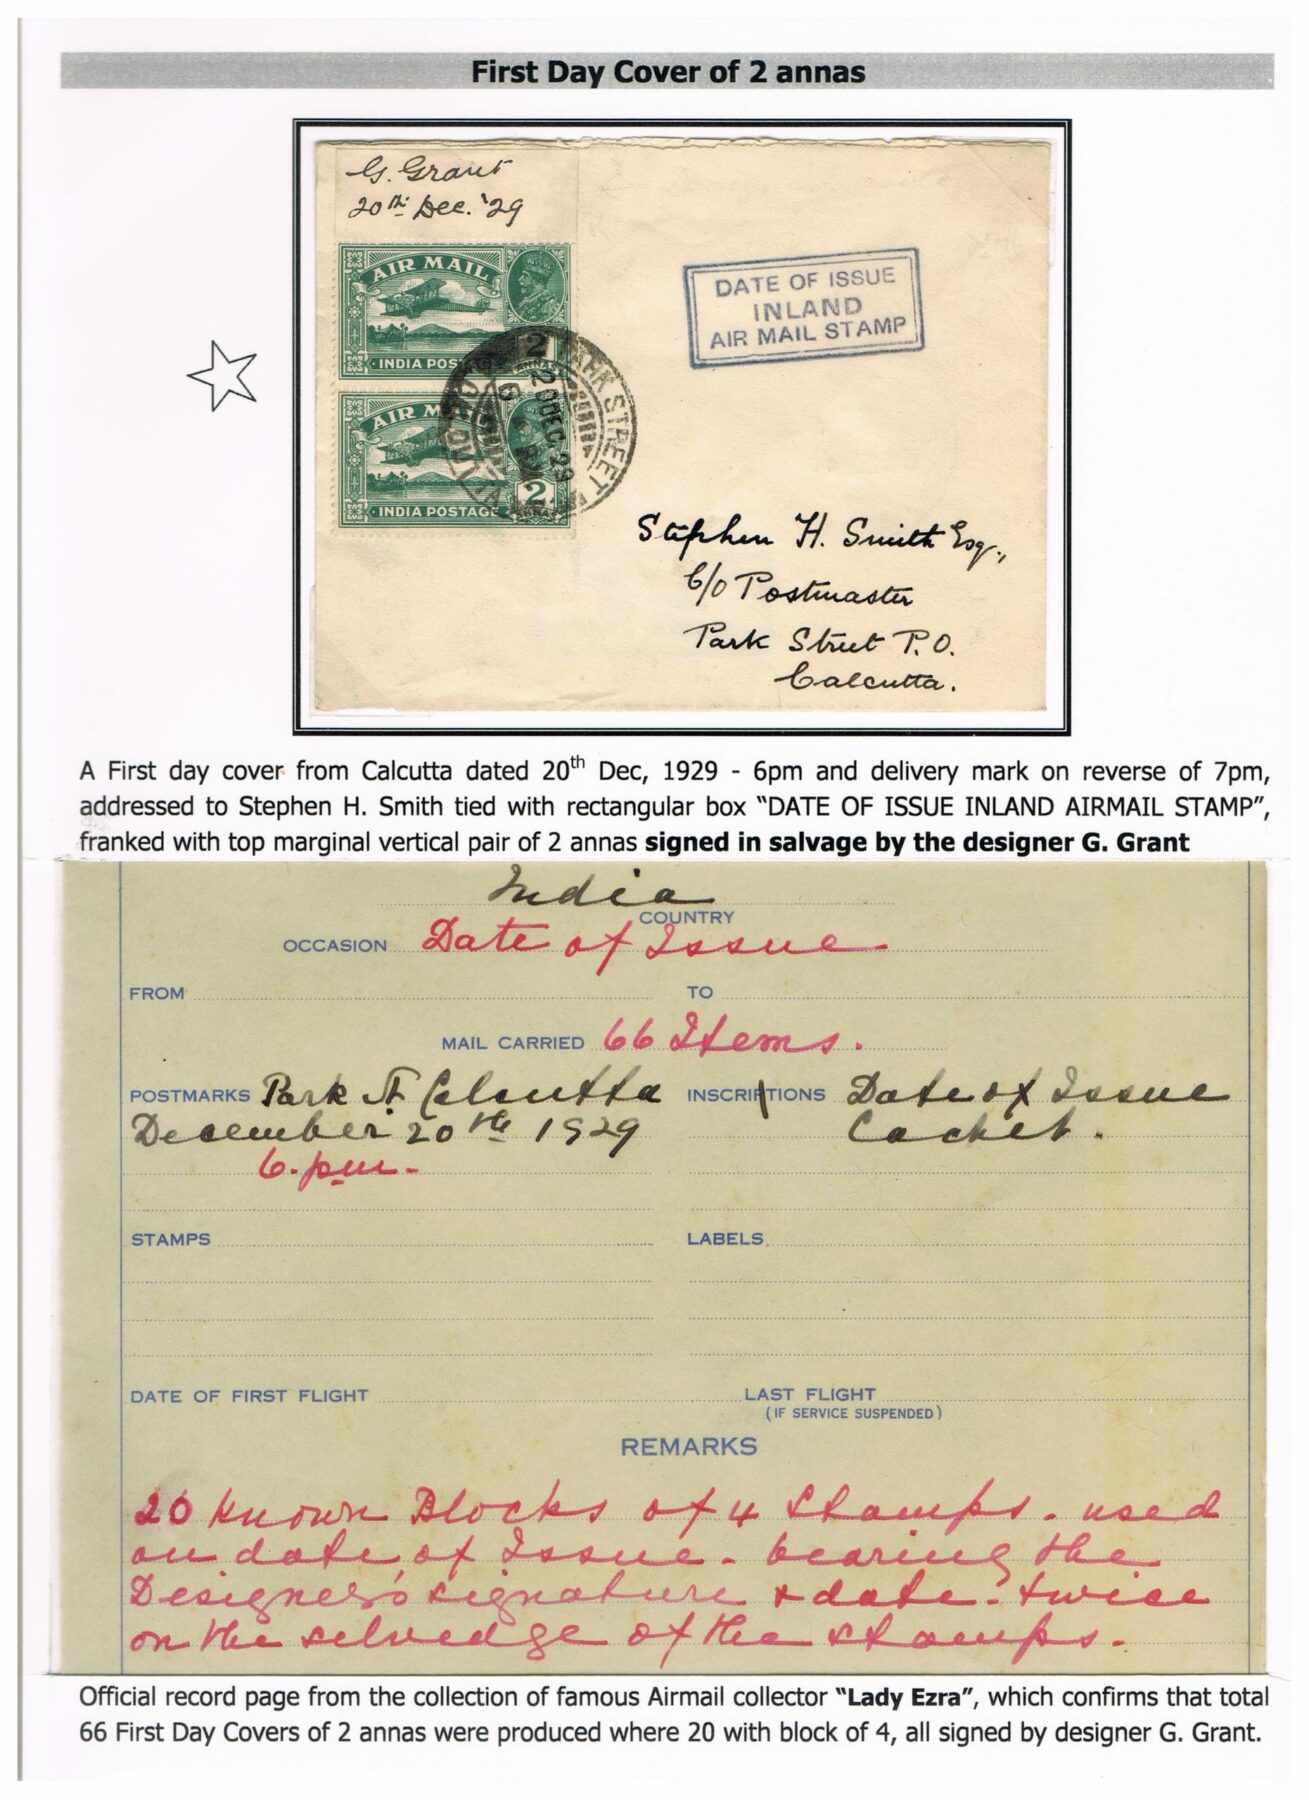 First Day Cover of 2 annas
G. Grant
20th Dec. '29
AIR MAIL
INDIA POSTAGE
2
ANNAS
AIR MAIL
INDIA POSTAGE
2
ANNAS
PARK STREET
CALCUTTA
20 DEC. 29
6 PM
DATE OF ISSUE
INLAND
AIR MAIL STAMP
Stephen H. Smith Esq.,
C/o Postmaster
Park Street P.O.
Calcutta.
A First day cover from Calcutta dated 20th Dec, 1929 - 6pm and delivery mark on reverse of 7pm,
addressed to Stephen H. Smith tied with rectangular box “DATE OF ISSUE INLAND AIRMAIL STAMP”,
franked with top marginal vertical pair of 2 annas signed in salvage by the designer G. Grant
India
COUNTRY
OCCASION Date of Issue.
FROM TO
MAIL CARRIED 66 Items.
POSTMARKS Park St. Calcutta INSCRIPTIONS Date of Issue
December 20th 1929 Cachet.
6. pm.
STAMPS LABELS
DATE OF FIRST FLIGHT LAST FLIGHT
(IF SERVICE SUSPENDED)
REMARKS
20 known Blocks of 4 stamps. used
on date of Issue - bearing the
Designer's signature & date - twice
on the selvedge of the stamps.
Official record page from the collection of famous Airmail collector “Lady Ezra”, which confirms that total
66 First Day Covers of 2 annas were produced where 20 with block of 4, all signed by designer G. Grant.